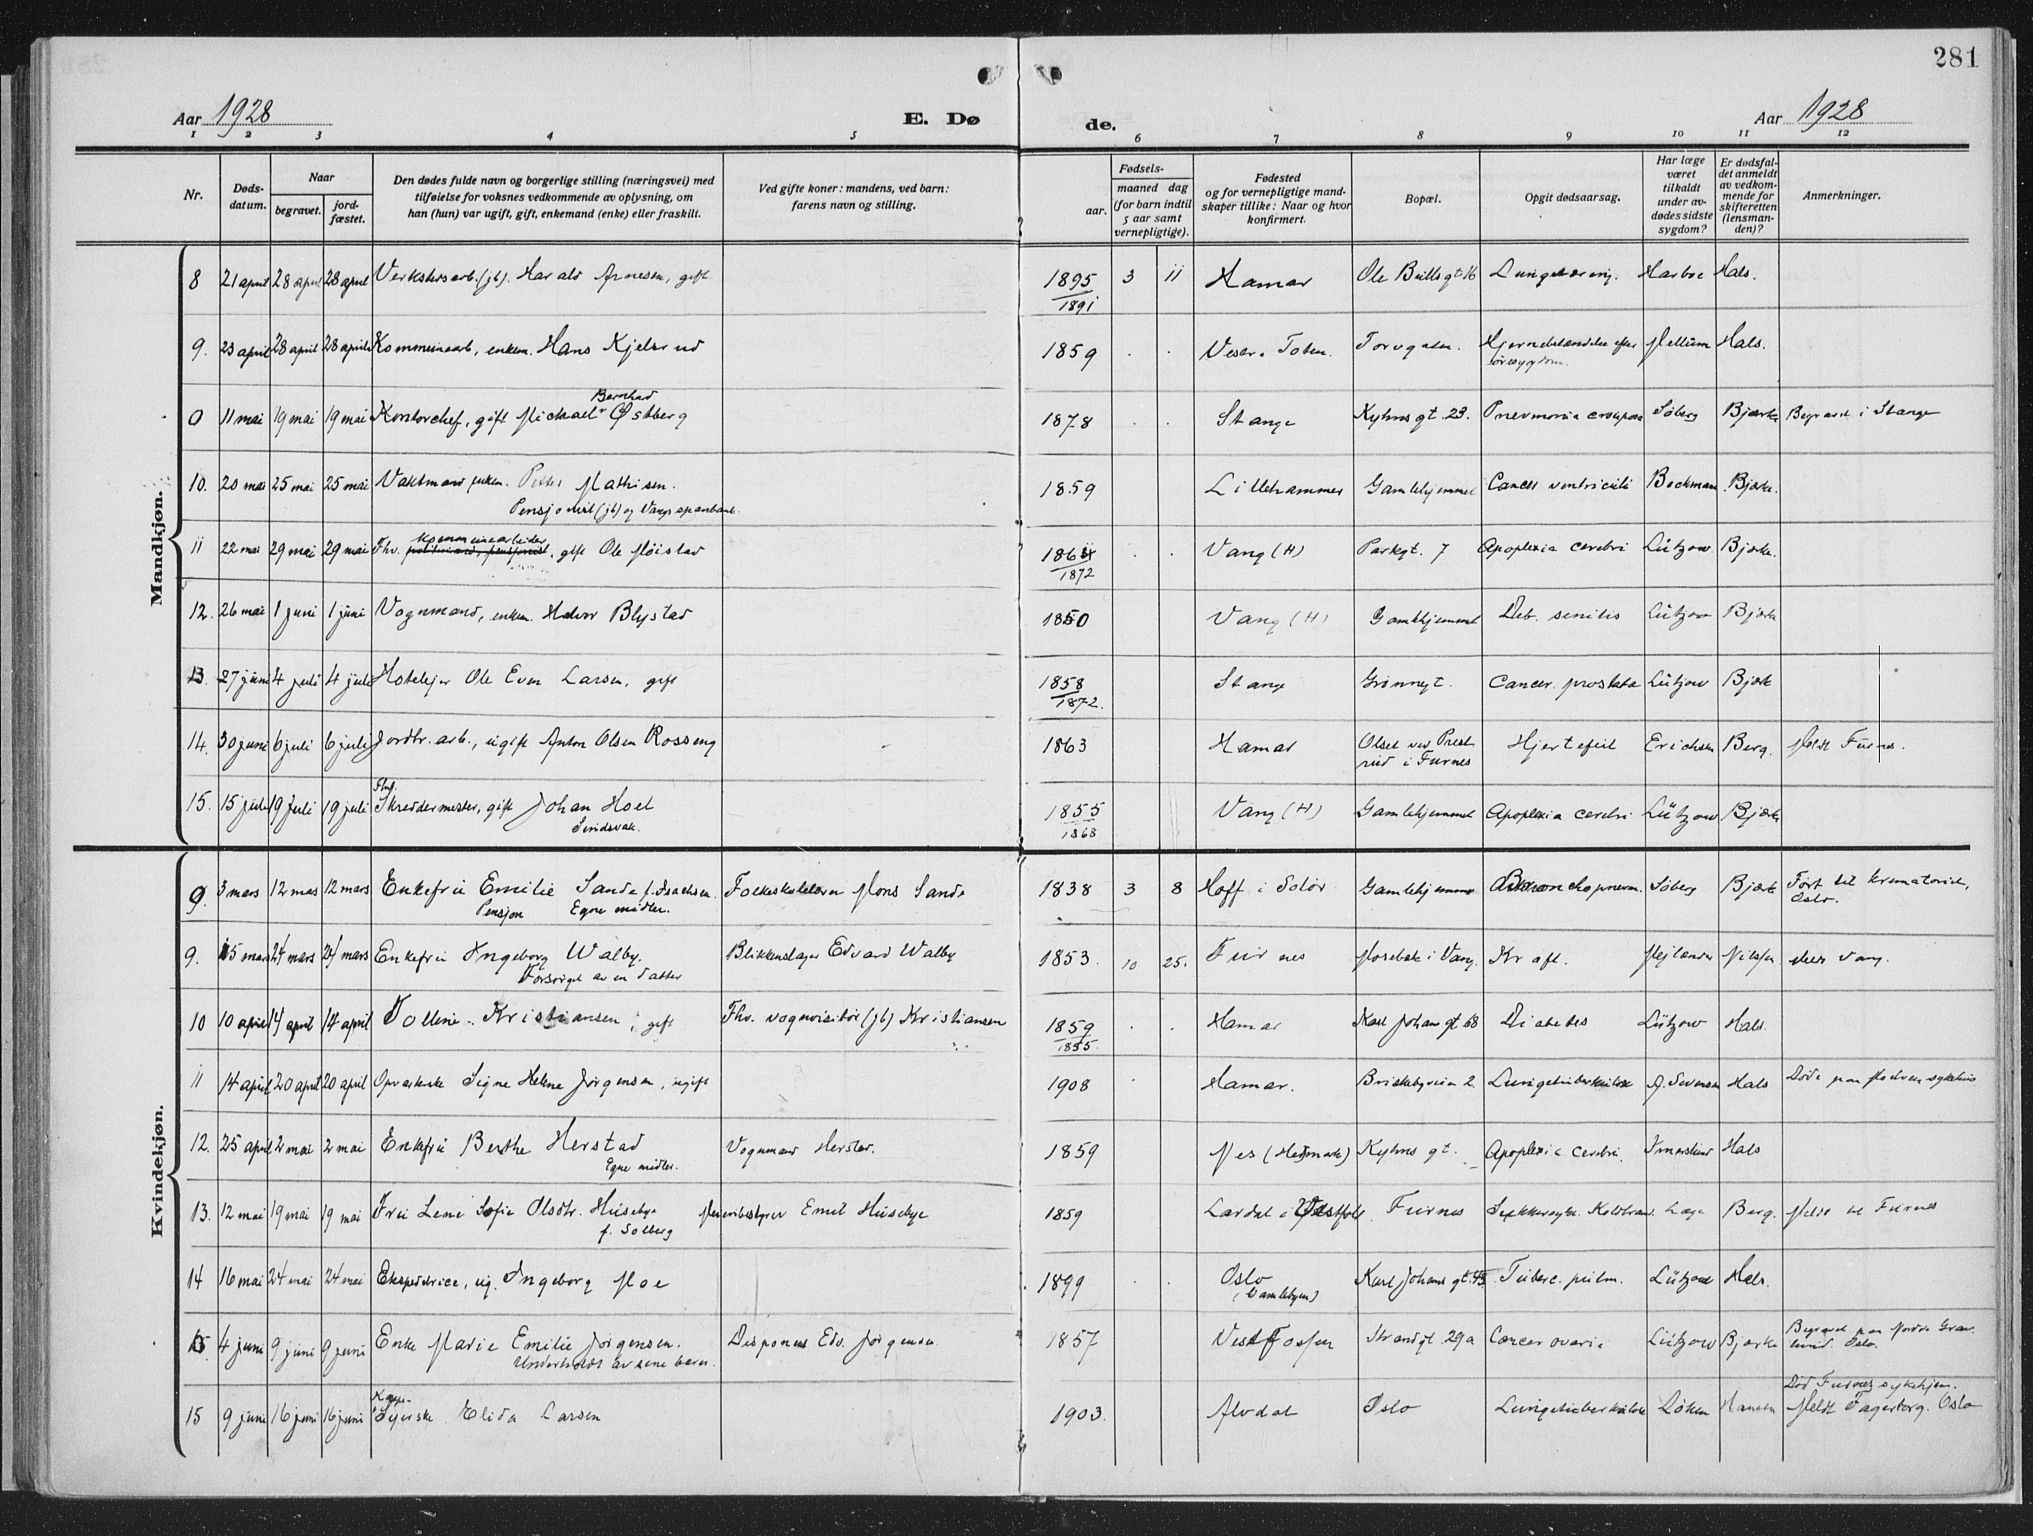 281
Aar 1928 E. Dø de. Aar 1928
1 2 3 4 5 6 7 8 9 10 11 12
Nr. Døds-datum. Naar begravet. jord-fæstet. Den dødes fulde navn og borgerlige stilling (næringsvei) med tilføielse for voksnes vedkommende av oplysning, om han (hun) var ugift, gift, enkemand (enke) eller fraskilt. Ved gifte koner: mandens, ved barn: farens navn og stilling. Fødsels- aar. maaned dag (for barn indtil 5 aar samt vernepligtige). Fødested og for vernepligtige mand-skaper tillike: Naar og hvor konfirmert. Bopæl. Opgit dødsaarsag. Har læge været tilkaldt under av-dødes sidste sygdom? Er dødsfal-det anmeldt av vedkom-mende for skifteretten (lensman-den)? Anmerkninger.
Mandkjøn.
8 21 april 28 april 28 april Verkstedsarb. (jb). Harald Arnesen, gift 1895 3 11 Hamar Ole Bullsgt 16 Harboe Hals.
1891
9. 23 april 28 april 28 april Kommunearb, enkem. Hans Kjelsrud 1859 . . Vestre Toten. Torvgaten. Hjernebetændelse efter Mellum Hals.
øresygdom.
Bernhard
0 11 mai 19 mai 19 mai Kontorchef, gift Michael Østberg 1878 . . Stange Kyhnsgt. 23. Pneumonia crouposa Søberg Bjørke Begravet i Stange
10. 20 mai 25 mai 25 mai Vaktmand, enkem. Petter Mathisen. 1859 Lillehammer Gamlehjemmet Cancer ventriculi Bockman. Bjørke.
Pensjonist (jb) og Vangs sparebank.
kommunearbeider
11 22 mai 29 mai 29 mai Fhv. politimand, pensjonist, gift Ole Møistad 1864 . . Vang (H) Parkgt. 7 Apoplexia cerebri Lützow. Bjørke.
1872
12. 26 mai 1 juni 1 juni Vognmand, enkem. Halvor Blystad 1850 Vang (H) Gamlehjemmet Deb. senilis Lützow Bjørke
13. 27 juni 4 juli 4 juli Hotelejer Ole Even Larsen, gift 1858 Stange Grønnegt. Cancer. prostata Lützow Bjørke
1872.
14. 30 juni 6 juli 6 juli Jordbr. arb., ugift Anton Olsen Rosseng 1863 Hamar Olset ved Prest- Hjertefeil Erichsen Berg. Meldt Furnes.
rud i Furnes
Fhv.
15. 15 juli 19 juli 19 juli Skreddermester, gift Johan Hoel 1855 Vang (H) Gamlehjemmet Apoplexia cerebri Lützow Bjørke
Sindsvak. 1868
Kvindekjøn.
9. 3 mars 12 mars 12 mars Enkefru Emilie Sande f. Isachsen. Folkeskolelærer Mons Sande 1838 3 8 Hoff i Solør. Gamlehjemmet Bronchopneum. Søberg Bjørke Ført til krematoriet,
Pensjon Egne midler. Oslo.
9. 15 mars 24 mars 24 mars Enkefru Ingeborg Walby. Blikkenslager Edvard Walby 1853. 10 25. Furnes Mosebæk i Vang. Kræft. Mejlænder Nilsen Meldt Vang.
Forsørget av en datter
10 10 april 14 april 14 april Kristiansen, gift Fhv. vognvisitør (jb) Kristiansen 1859 . . Hamar Karl Johans gt 68 Diabetes Lützow Hals.
1855.
11 14 april 20 april 20 april Opvarterske Signe Helene Jørgensen, ugift 1908 . Hamar. Briskebyveien 2. Lungetuberkulose Hals Døde paa sykehus
12. 25 april 2 mai 2 mai Enkefru Berthe Herstad Vognmand Herstad. 1859 Nes (Hedmark) Kyhns gt. Apoplexia cerebri. Hals
Egne midler.
13. 12 mai 19 mai 19 mai Fru Lene Sofie Olsdtr. Huseby Meieribestyrer Emil Huseby 1859 Lardal i Vestfold. Furnes Berg. Meldt til Furnes
f. Solberg
14 16 mai 24 mai 24 mai Ekspeditrice, ug. Ingeborg Moe 1899 . . Oslo Karl Johans gt. 43. Tuberc. pulm. Lützow Hals.
(Gamlebyen)
15. 4 juni 9 juni 9 juni Enke Marie Emilie Jørgensen. Disponent Edv. Jørgensen 1857 Vestfossen Strandgt. 29a Cancer ovarie Lützow Bjørke Begravet paa Nordre Grav-
Underholdt av sine barn. lund. Oslo.
Kape- Død Furnes sykehjem.
15 9 juni 16 juni 16 juni Syerske Elida Larsen 1903. Alvdal Oslo Lungetuberkulose Løken Hansen Meldt Fagerborg. Oslo